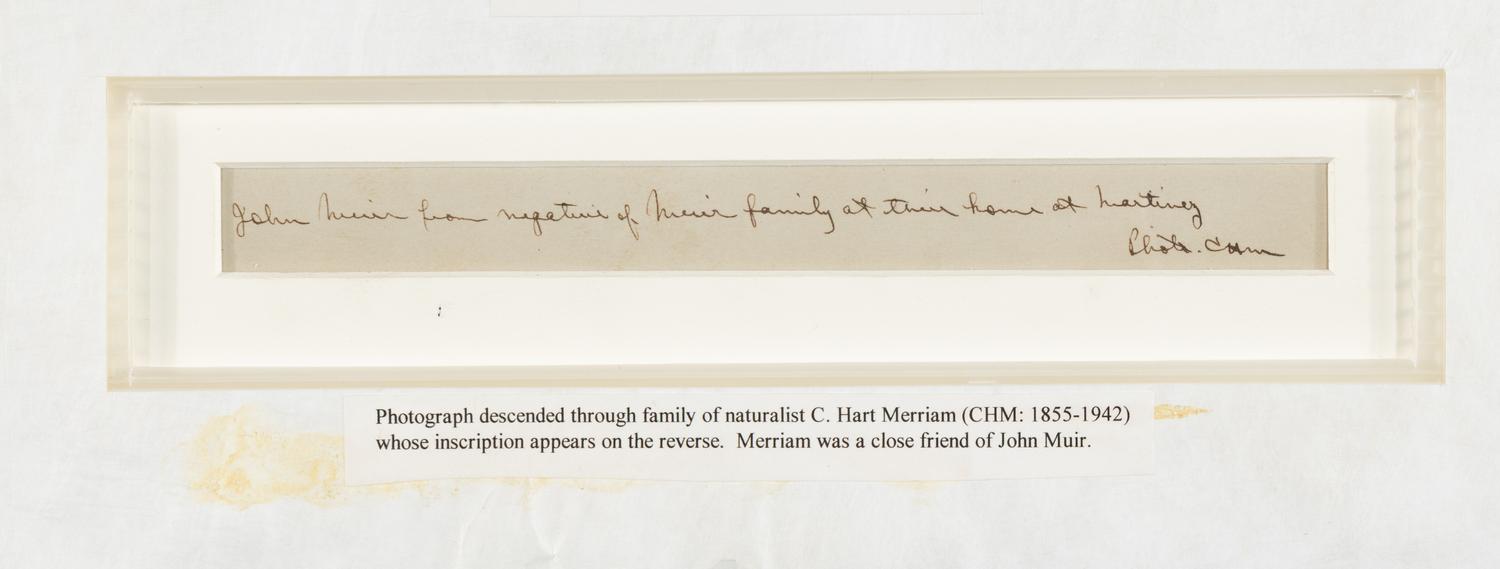 John Muir from negative of Muir family at their home at Martinez
Photo. CHM
Photograph descended through family of naturalist C. Hart Merriam (CHM: 1855-1942)
whose inscription appears on the reverse. Merriam was a close friend of John Muir.